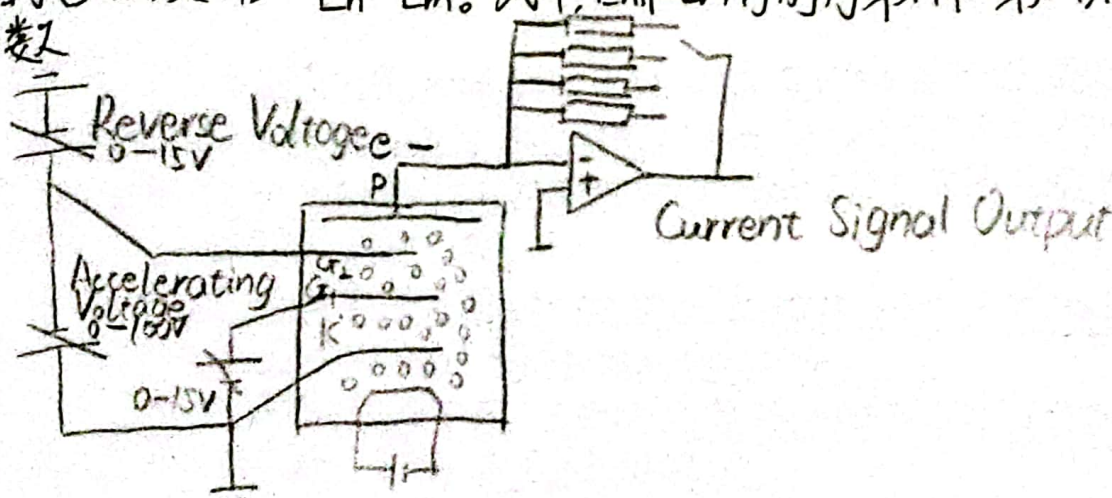 类2
Reverse Voltage e -
0-15V
P
-
+
Current Signal Output
G2
Accelerating
G1
Voltage
0-100V
K
0-15V